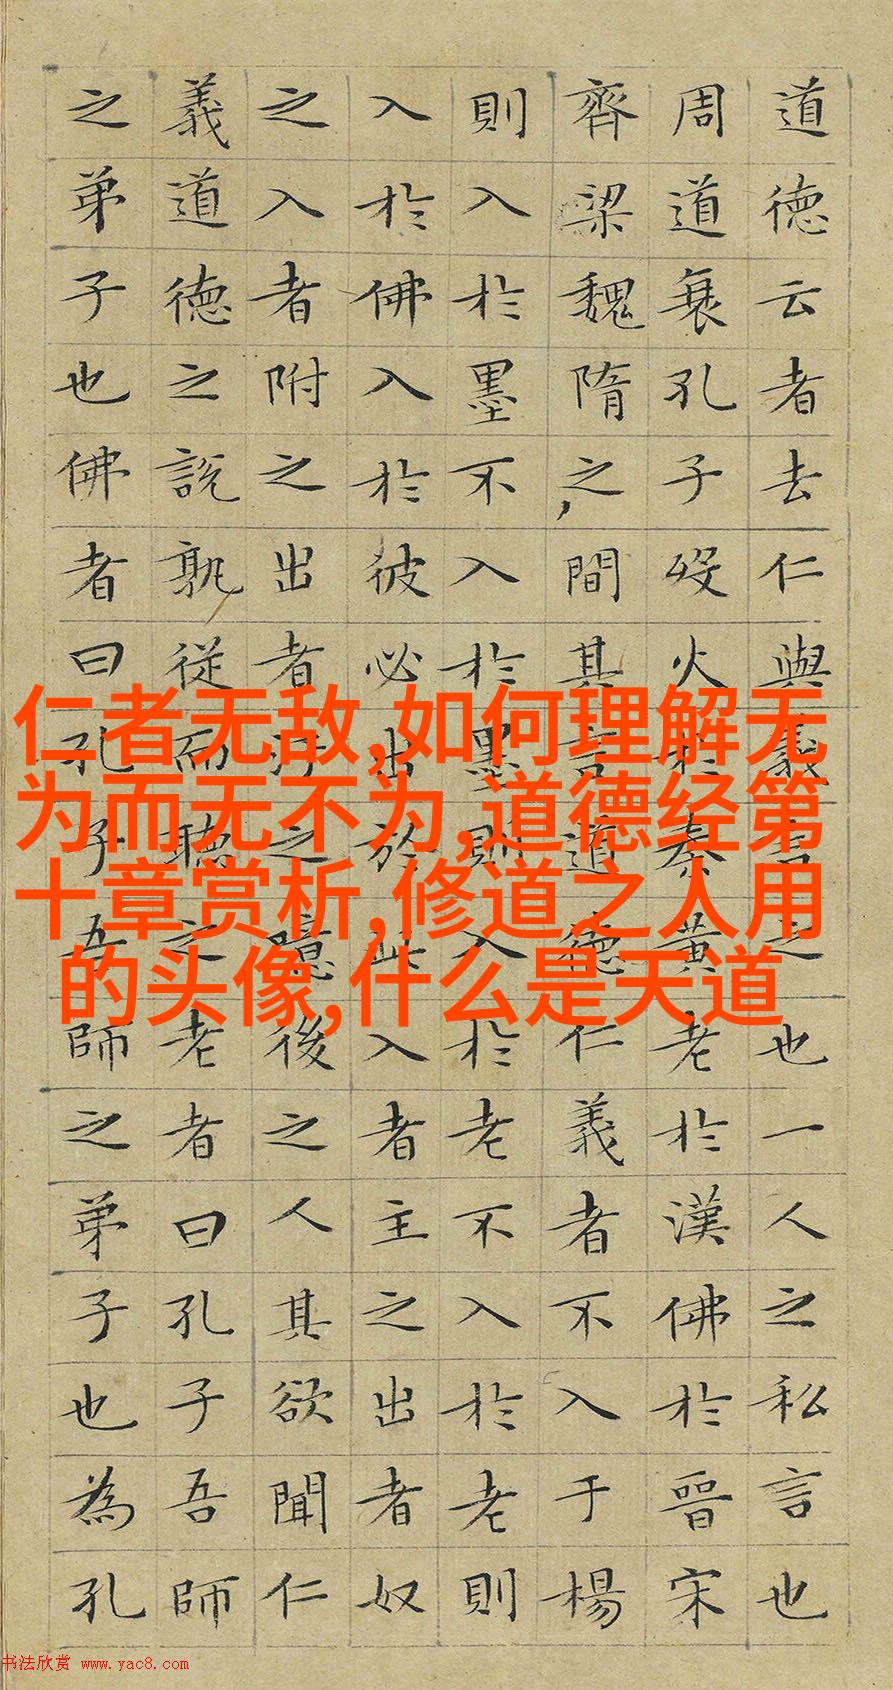 道德云者去仁與義言之也一人之私言也
周道衰孔子歿火於秦黃老於漢佛於晉宋
齊梁魏隋之間其言道德仁義者不入于楊
則入於墨不入於墨則入於老不入於老則
入於佛入於彼必出於此入者主之出者奴
之入者附之出者汙之噫後之人其欲聞仁
義道德之說孰從而聽之老者曰孔子吾師
之弟子也佛者曰孔子吾師之弟子也為孔
仁者无敌,如何理解无
为而无不为,道德经第
十章赏析,修道之人用
的头像,什么是天道
书法欣赏 www.yac8.com